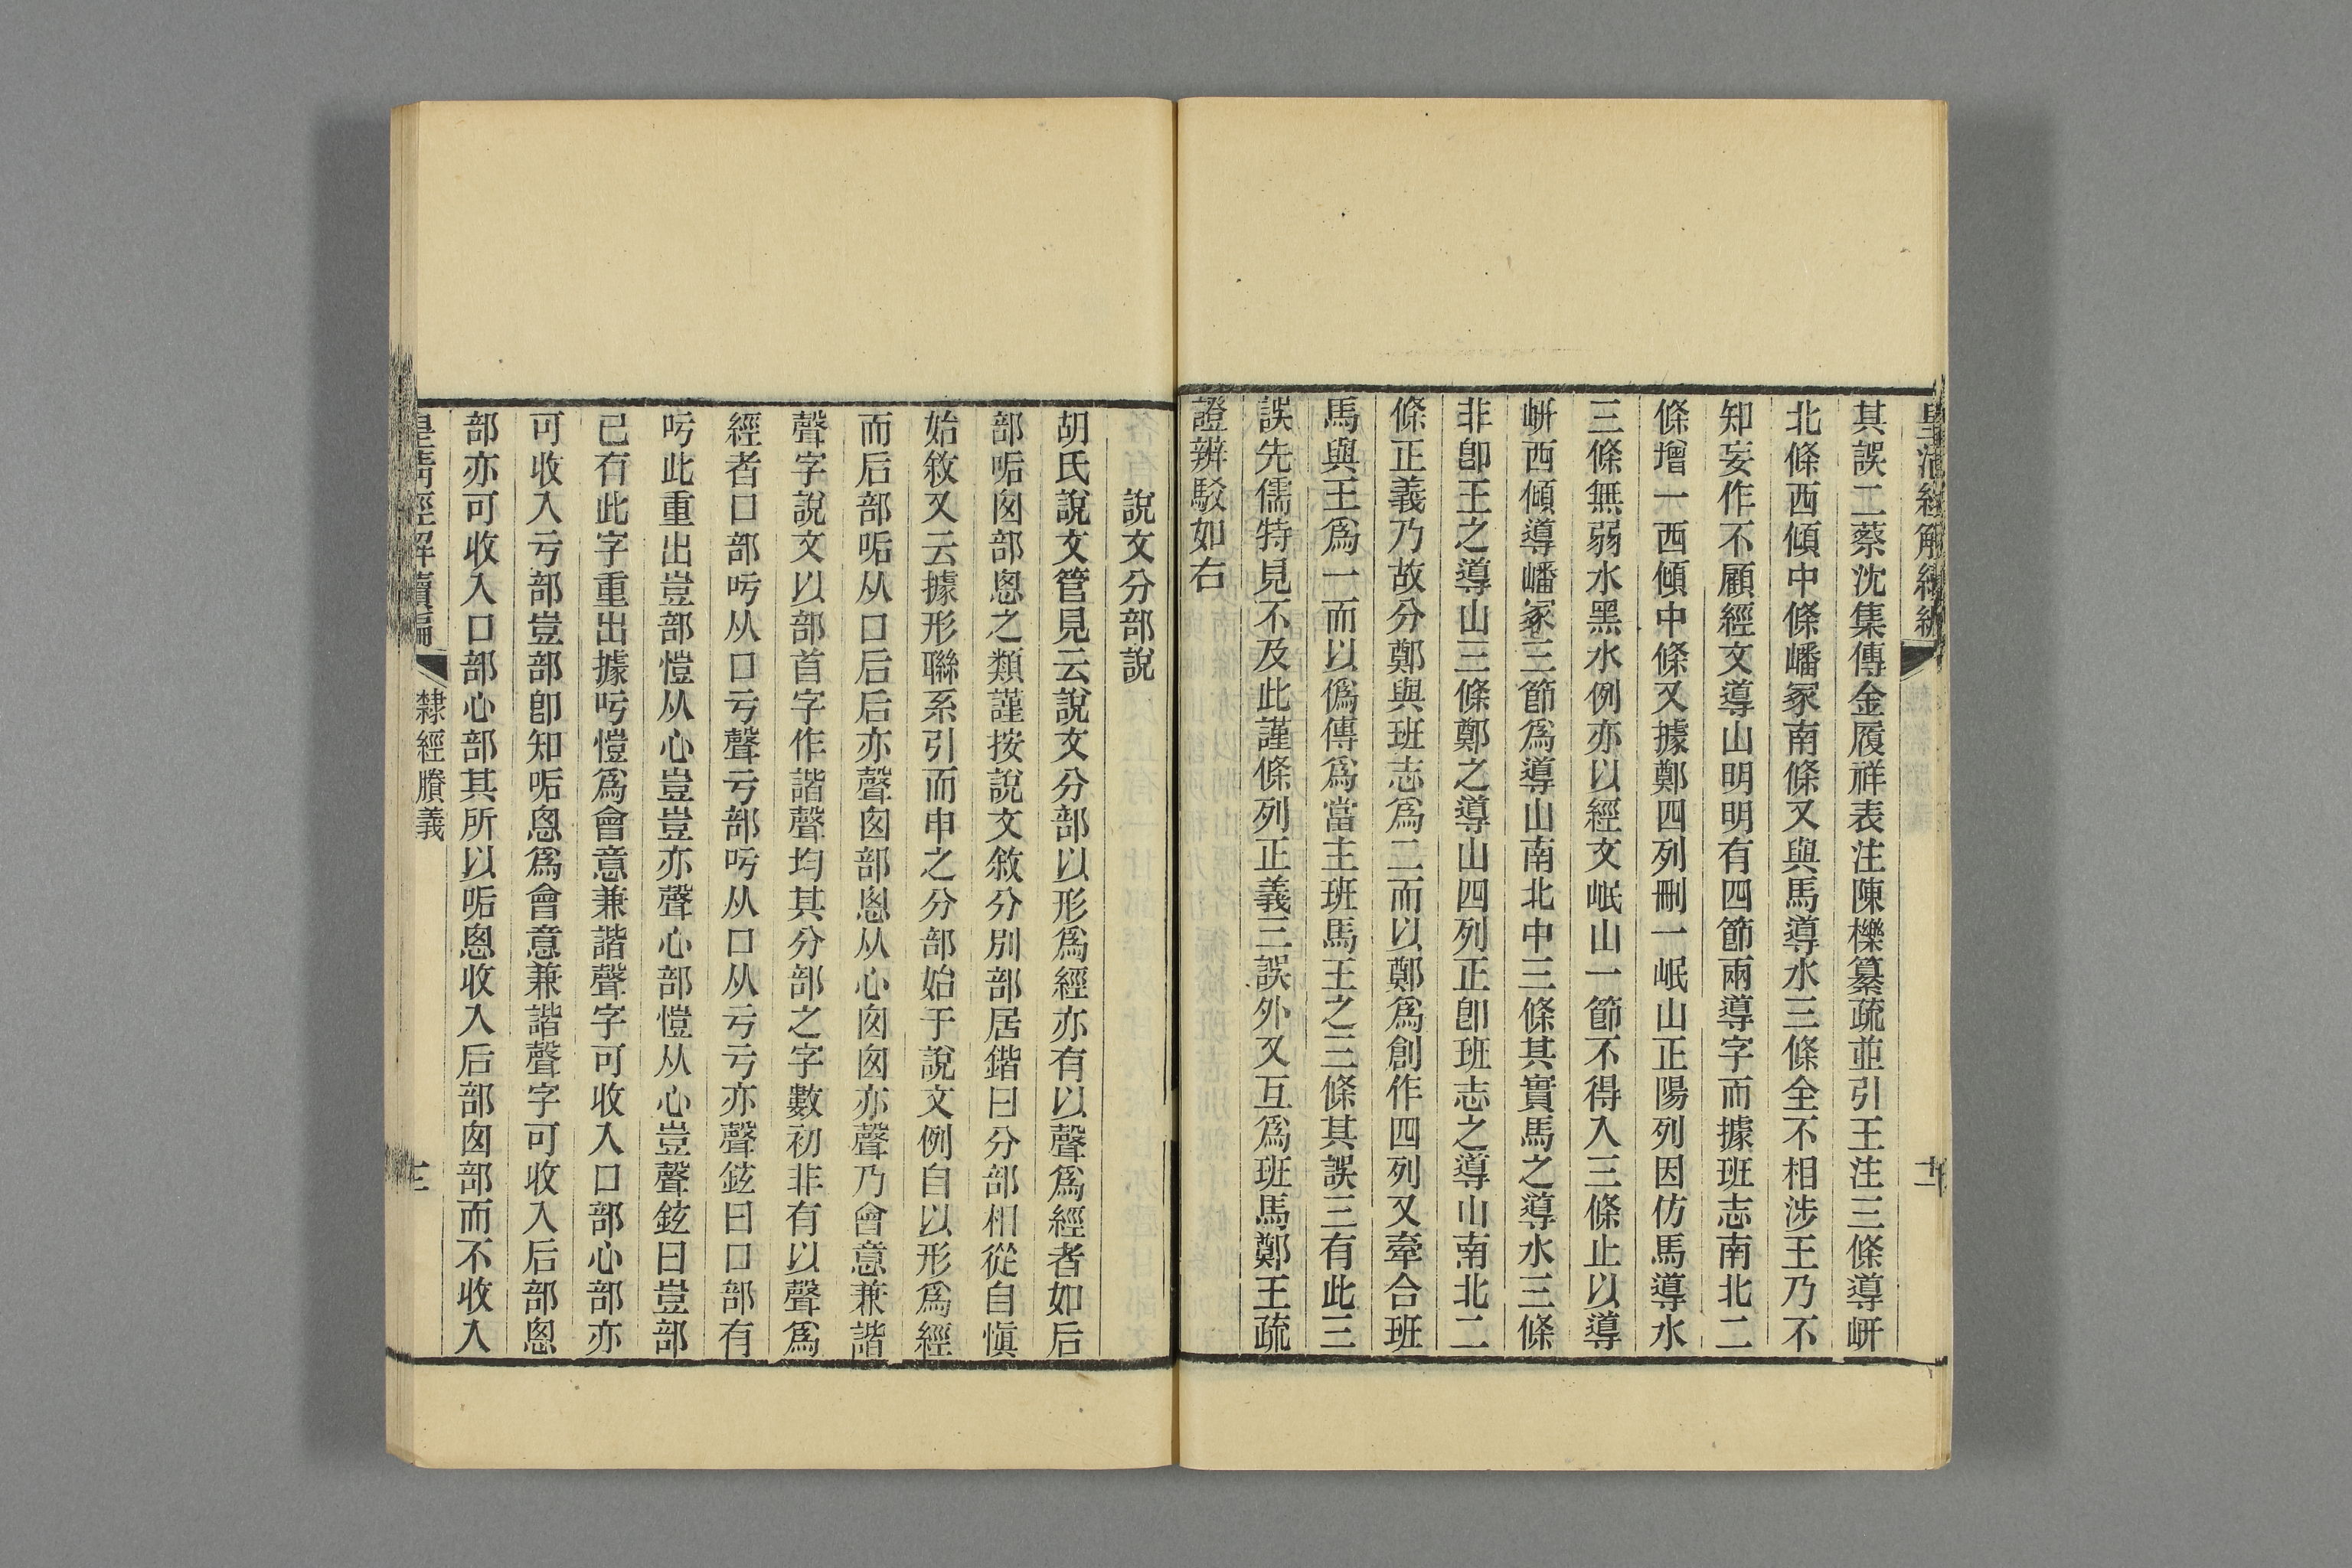 其誤二蔡沈集傳金履祥表注陳櫟纂疏並引王注三條導岍
北條西傾中條嶓冢南條又與馬導水三條全不相涉王乃不
知妄作不顧經文導山明明有四節兩導字而據班志南北二
條增一西傾中條又據鄭四列刪一岷山正陽列因仿馬導水
三條無弱水黑水例亦以經文岷山一節不得入三條止以導
岍西傾導嶓冢三節爲導山南北中三條其實馬之導水三條
非卽王之導山三條鄭之導山四列正卽班志之導山南北二
條正義乃故分鄭與班志爲二而以鄭爲創作四列又牽合班
馬與王爲一而以僞傳爲當主班馬王之三條其誤三有此三
誤先儒特見不及此謹條列正義三誤外又互爲班馬鄭王疏
證辨駁如右
說文分部說
胡氏說文管見云說文分部以形爲經亦有以聲爲經者如后
部㖃囪部悤之類謹按說文敘分別部居鍇曰分部相從自愼
始敘又云據形聯系引而申之分部始于說文例自以形爲經
而后部㖃从口后后亦聲囪部悤从心囪囪亦聲乃會意兼諧
聲字說文以部首字作諧聲均其分部之字數初非有以聲爲
經者口部吁从口亏聲亏部吁从口从亏亏亦聲鉉曰口部有
吁此重出豈部愷从心豈豈亦聲心部愷从心豈聲鉉曰豈部
已有此字重出據吁愷爲會意兼諧聲字可收入口部心部亦
可收入亏部豈部卽知㖃悤爲會意兼諧聲字可收入后部悤
部亦可收入口部心部其所以㖃悤收入后部囪部而不收入
皇清經解續編
隸經賸義